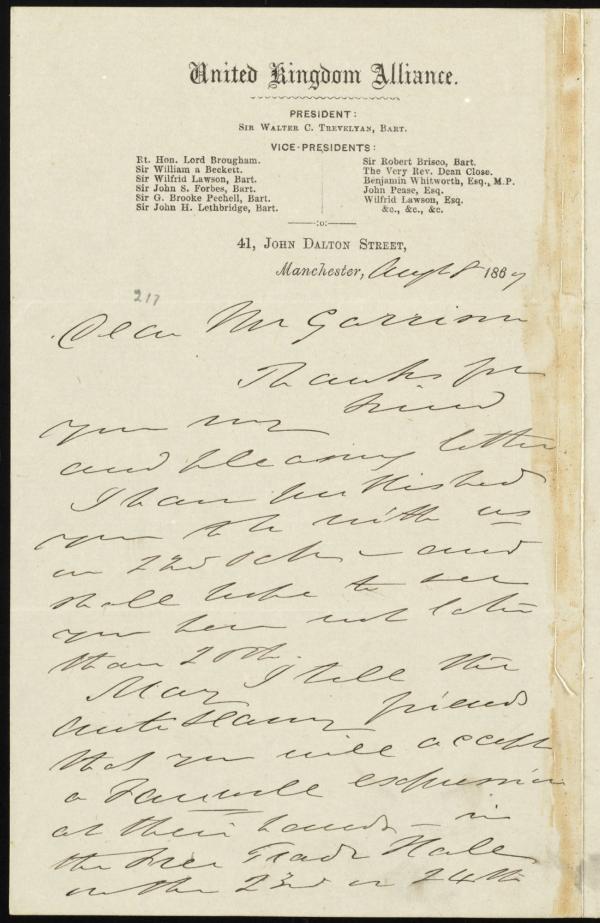 United Kingdom Alliance.
PRESIDENT:
SIR WALTER C. TREVELYAN, BART.
VICE-PRESIDENTS:
Rt. Hon. Lord Brougham.
Sir William a Beckett.
Sir Wilfrid Lawson, Bart.
Sir John S. Forbes, Bart.
Sir G. Brooke Pechell, Bart.
Sir John H. Lethbridge, Bart.
Sir Robert Brisco, Bart.
The Very Rev. Dean Close.
Benjamin Whitworth, Esq., M.P.
John Pease, Esq.
Wilfrid Lawson, Esq.
&c., &c., &c.
:o:
41, JOHN DALTON STREET,
Manchester, Augt 8 1867
217
Dear Mr Garrison
Thanks for
your my kind
and pleasing letter
I have
you to be with us
on 22nd Octr - and
shall hope to see
you here not later
than 20th.
May I tell the
Anti Slavery friends
that you will accept
a Farewell expression
at their hands - in
the Free Trade Hall
on the 23rd or 24th